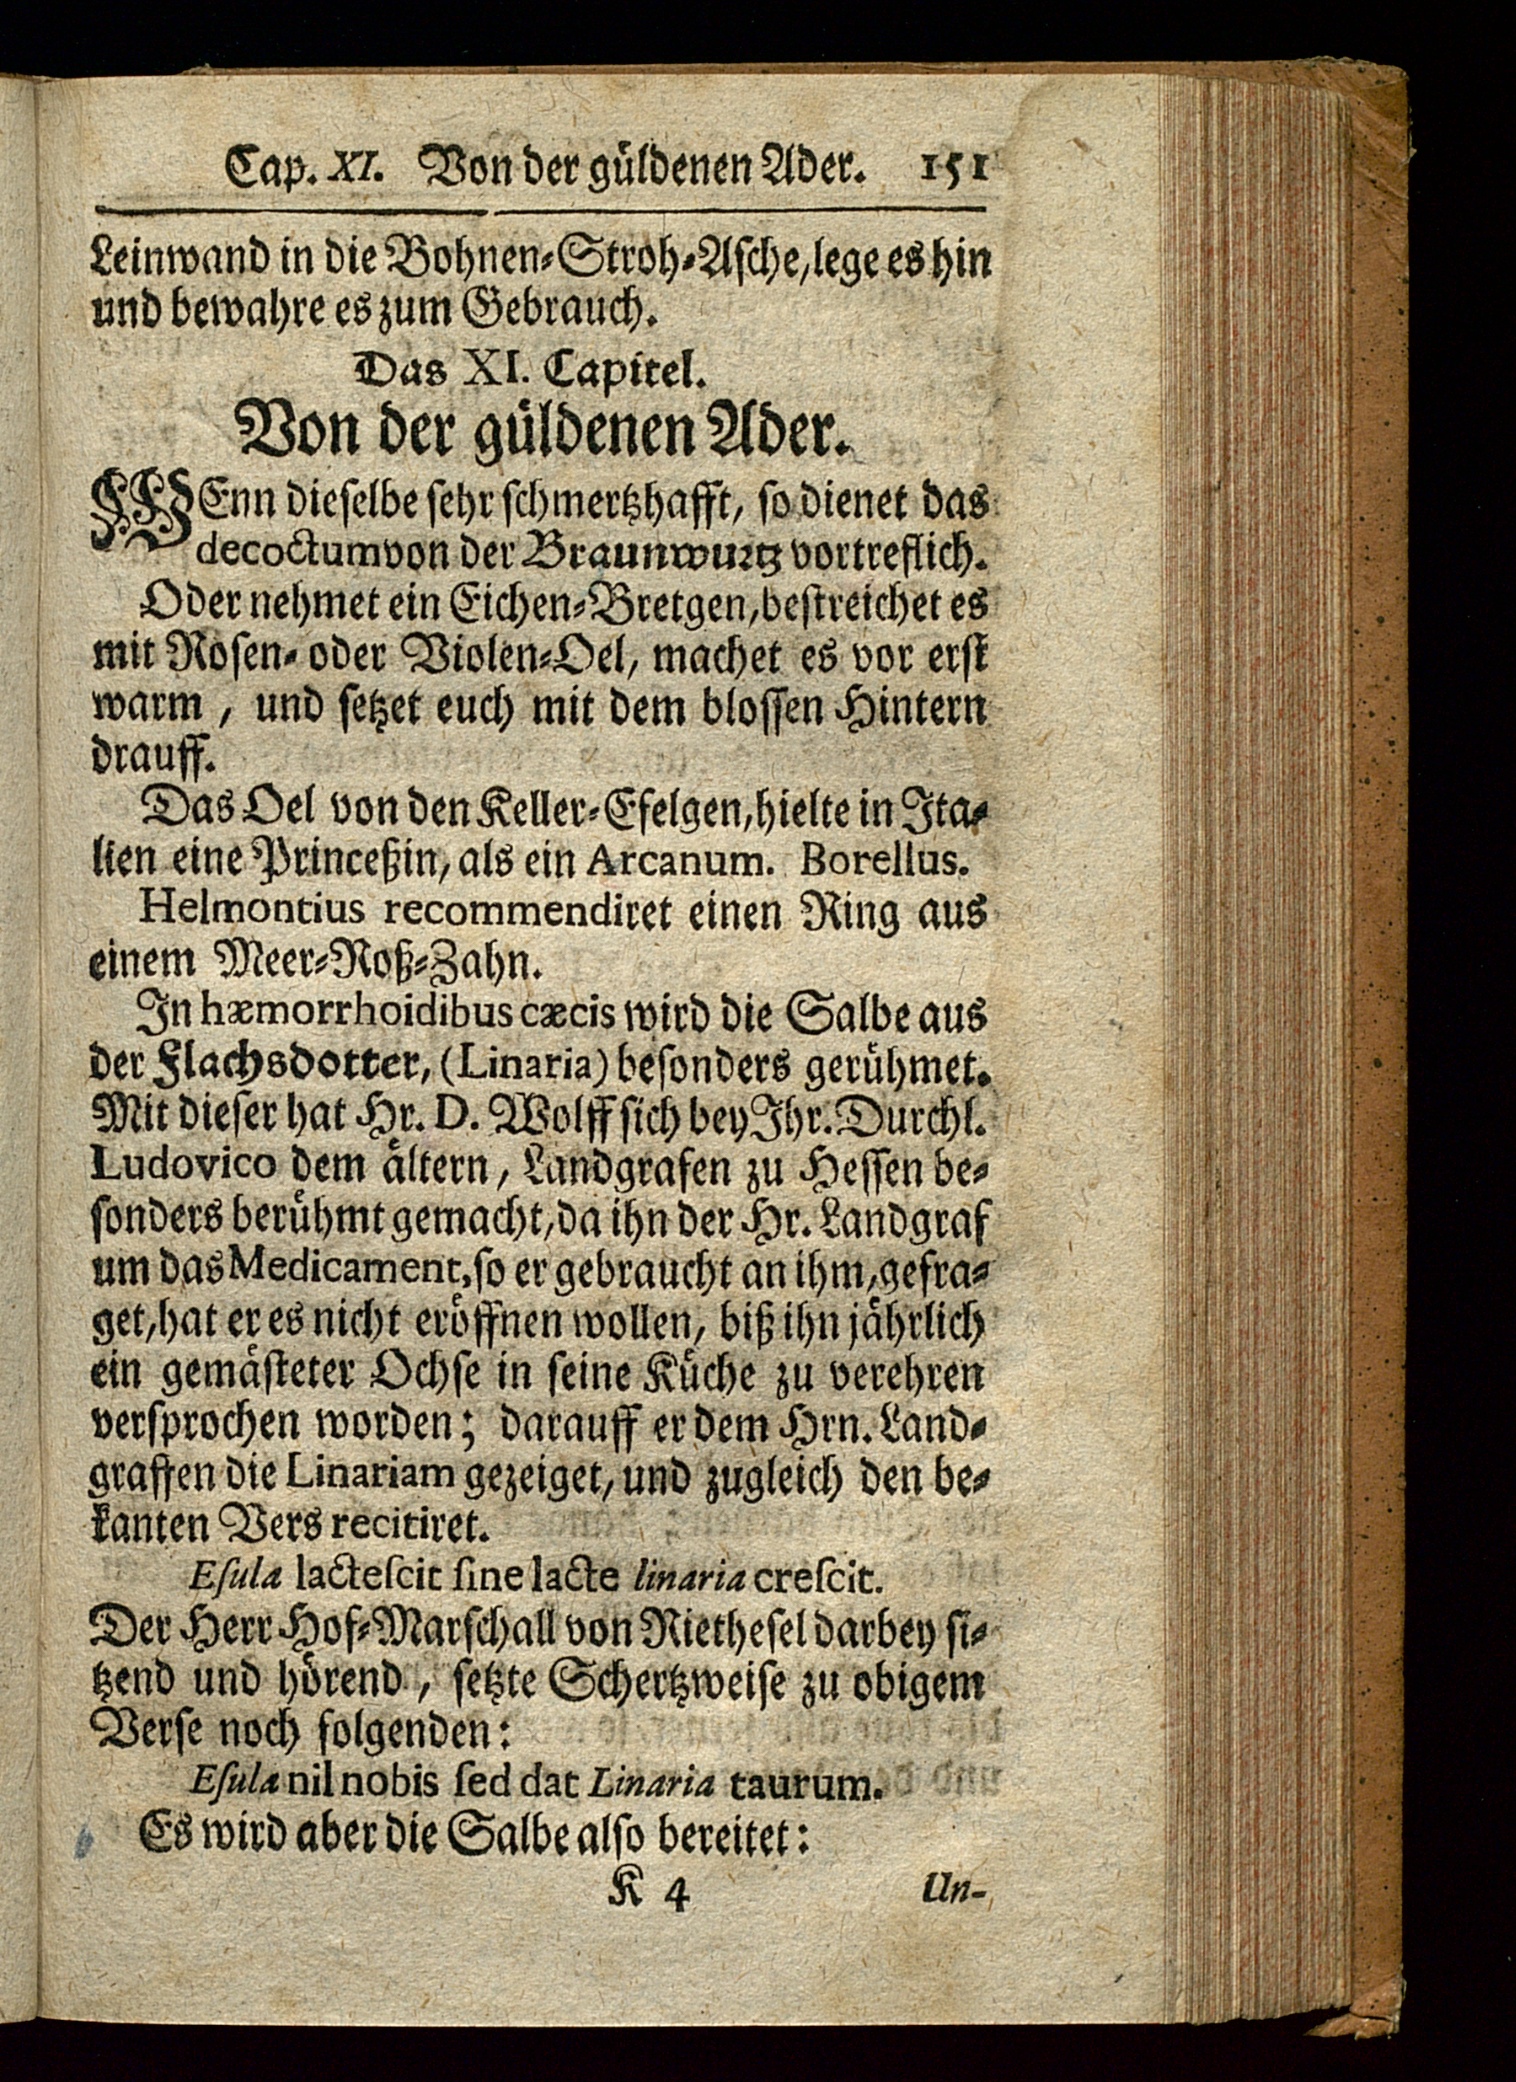 Cap. XI. Von der güldenen Ader. 151
Leinwand in die Bohnen-Stroh-Asche, lege es hin
und bewahre es zum Gebrauch.
Das XI. Capitel.
Von der güldenen Ader.
WEnn dieselbe sehr schmertzhafft, so dienet das
decoctum von der Braunwurtz vortreflich.
Oder nehmet ein Eichen-Bretgen, bestreichet es
mit Rosen- oder Violen-Oel, machet es vor erst
warm, und setzet euch mit dem blossen Hintern
drauff.
Das Oel von den Keller-Eselgen, hielte in Ita-
lien eine Princeßin, als ein Arcanum. Borellus.
Helmontius recommendiret einen Ring aus
einem Meer-Roß-Zahn.
In hæmorrhoidibus cæcis wird die Salbe aus
der Flachsdotter, (Linaria) besonders gerühmet.
Mit dieser hat Hr. D. Wolff sich bey Ihr. Durchl.
Ludovico dem ältern, Landgrafen zu Hessen be-
sonders berühmt gemacht, da ihn der Hr. Landgraf
um das Medicament, so er gebraucht an ihm, gefra-
get, hat er es nicht eröffnen wollen, biß ihn jährlich
ein gemästeter Ochse in seine Küche zu verehren
versprochen worden; darauff er dem Hrn. Land-
graffen die Linariam gezeiget, und zugleich den be-
kanten Vers recitiret.
Esula lactescit sine lacte linaria crescit.
Der Herr Hof-Marschall von Riethesel darbey si-
tzend und hörend, setzte Schertzweise zu obigem
Verse noch folgenden:
Esula nil nobis sed dat Linaria taurum.
Es wird aber die Salbe also bereitet:
K 4 Un-